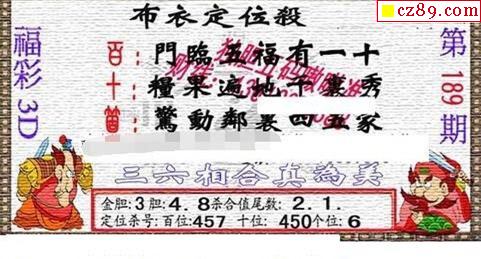 cz89.com
布衣定位殺
福彩3D
第189期
百：門臨五福有一十
十：糧果遍地千裏秀
驚動鄰裏四五家
三六相合真為美
金胆:3胆:4.8杀合值尾数:2.1.
定位杀号:百位:457 十位:450个位:6